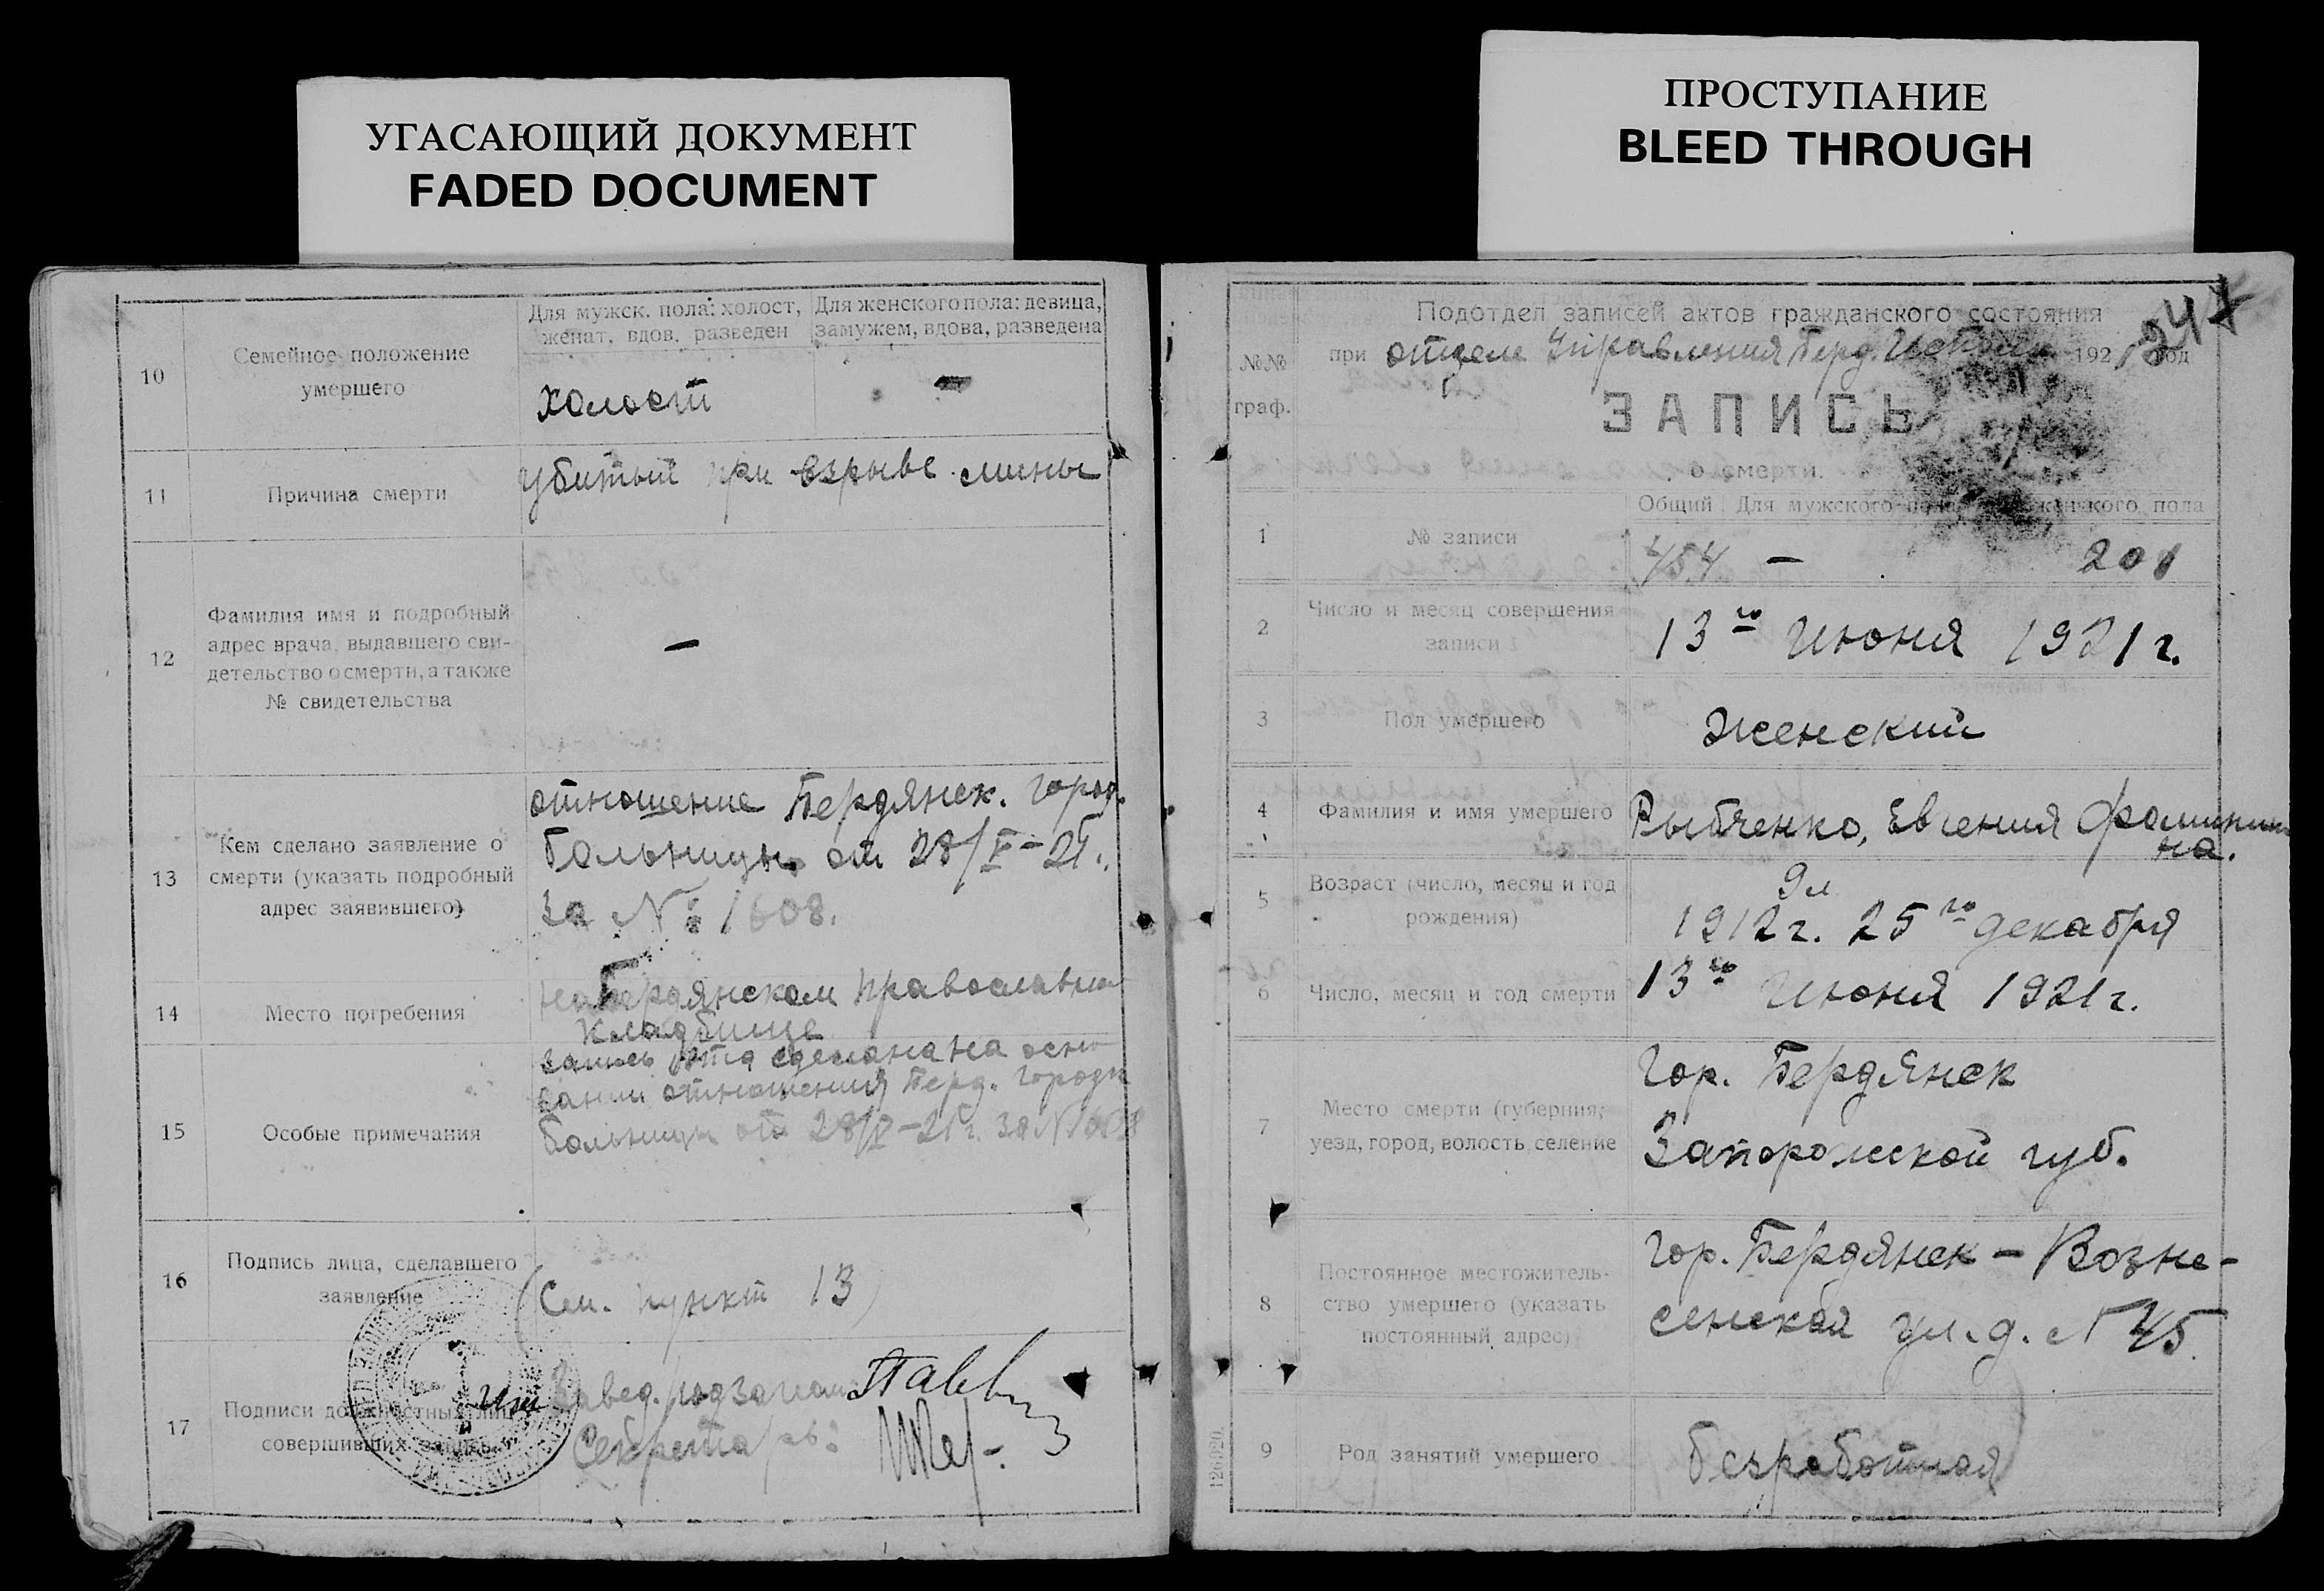 УГАСАЮЩИЙ ДОКУМЕНТ
FADED DOCUMENT
ПРОСТУПАНИЕ
BLEED THROUGH
10
Семейное положение
умершего
Для мужск. пола: холост,
женат, вдов, разведен
Для женского пола: девица,
замужем, вдова, разведена
холост
—
11
Причина смерти
убитый при взрыве мины
12
Фамилия имя и подробный
адрес врача, выдавшего сви-
детельство о смерти, а также
№ свидетельства
—
13
Кем сделано заявление о
смерти (указать подробный
адрес заявившего)
отношение Бердянск. город.
больницы от 28/V-21г.
за № 1608.
14
Место погребения
на Бердянском православном
кладбище
15
Особые примечания
запись эта сделана на осно
вании отношения Берд. городск
больницы от 28/V-21г. за № 1608
16
Подпись лица, сделавшего
заявление
(См. пункт 13)
17
Подписи должностных лиц
совершивших запись
Завед. подзагсом
Секретарь:
№№
граф.
Подотдел записей актов гражданского состояния
247
при отделе Управления Берд. 1921 год
ЗАПИСЬ
о смерти.
Общий
Для мужского пола
женского пола
1
№ записи
454
—
201
2
Число и месяц совершения
записи
13го Июня 1921 г.
3
Пол умершего
Женский
4
Фамилия и имя умершего
Рыбченко, Евгения Фоминиш
на.
5
Возраст (число, месяц и год
рождения)
9л
1912г. 25го декабря
6
Число, месяц и год смерти
13го Июня 1921г.
7
Место смерти (губерния,
уезд, город, волость, селение
Гор. Бердянск
Запорожской губ.
8
Постоянное местожитель-
ство умершего (указать
постоянный адрес)
гор. Бердянск — Возне-
сенская ул. д. № 45.
9
Род занятий умершего
безработная
126920.